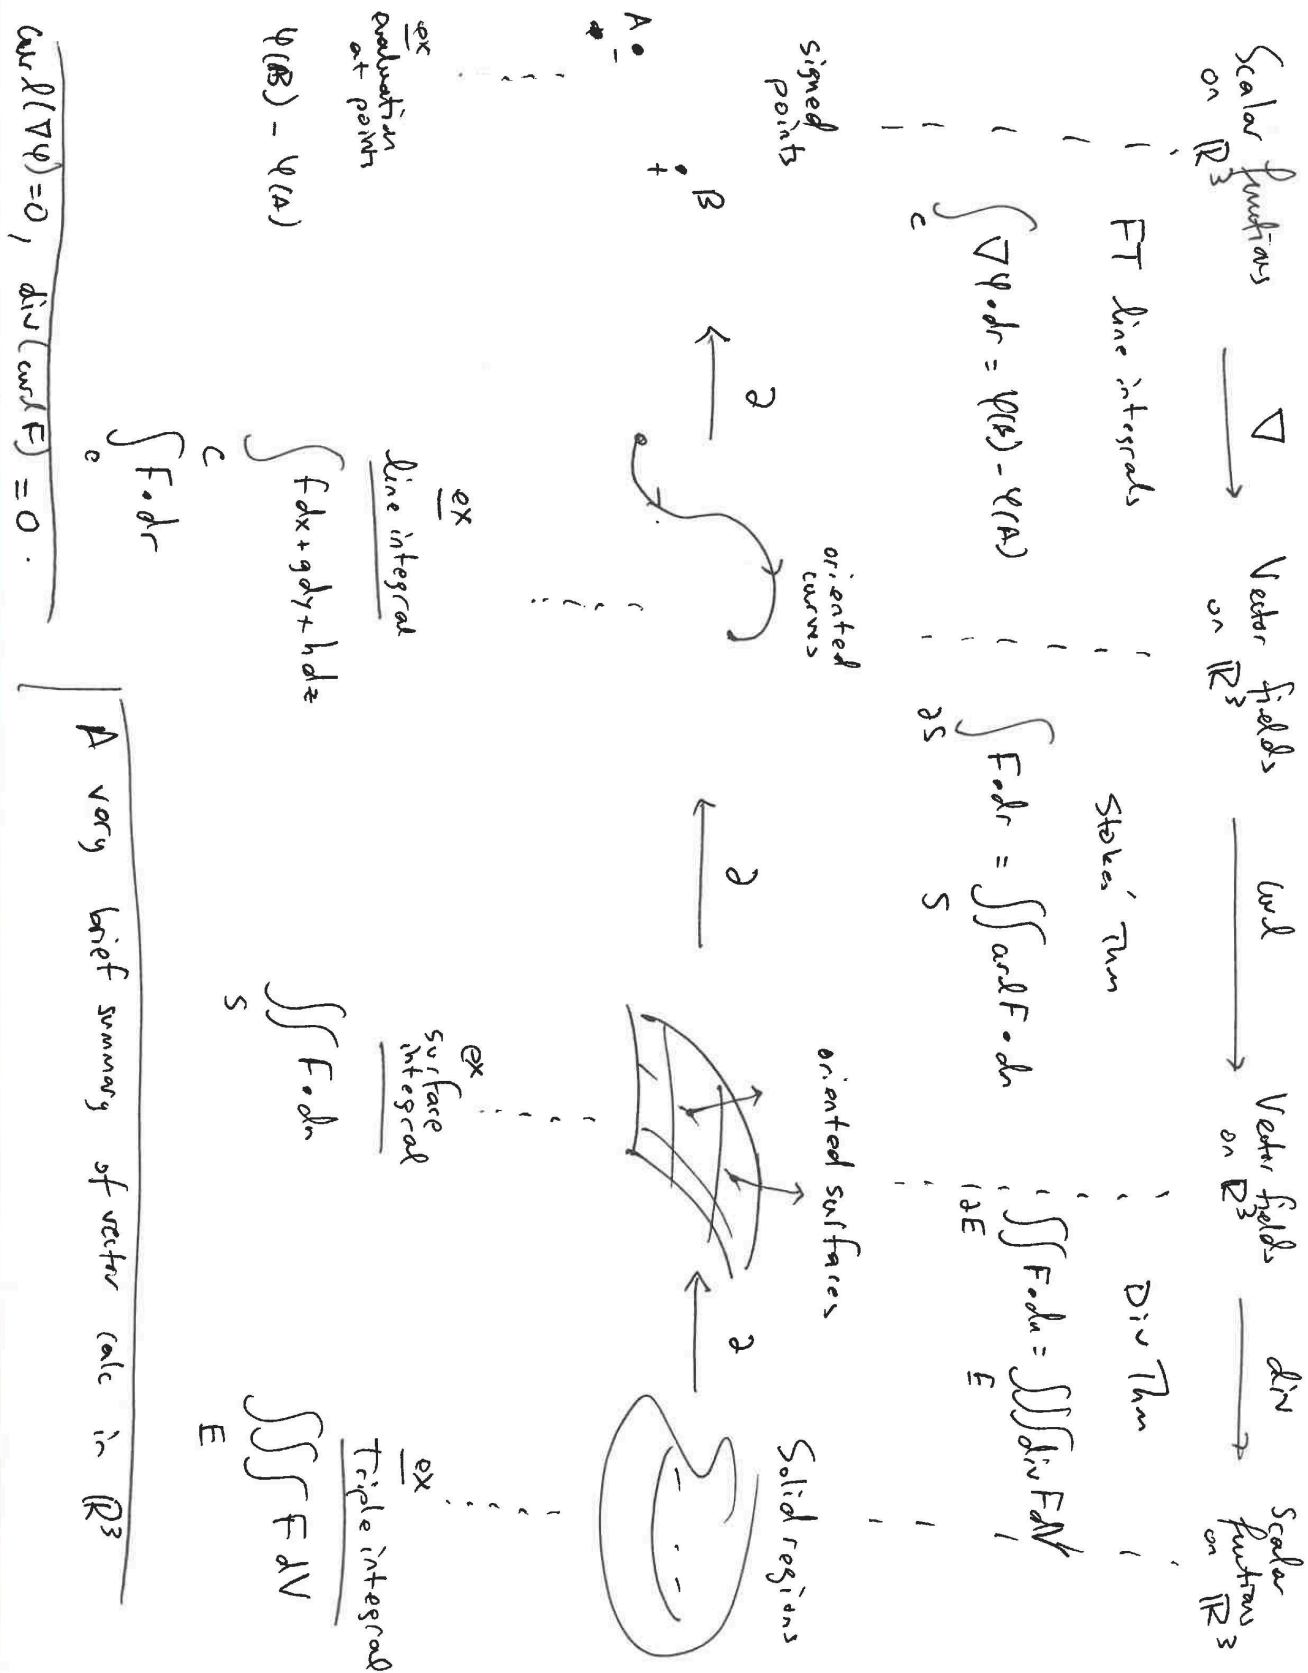 Scalar functions
on ℝ³
∇
Vector fields
on ℝ³
curl
Vector fields
on ℝ³
div
Scalar
functions
on ℝ³
FT line integrals
∫_C ∇φ·dr = φ(B) - φ(A)
Stokes' Thm
∫_∂S F·dr = ∬_S curl F·dn
Div Thm
∬_∂E F·dn = ∭_E div F dV
signed
points
oriented
curves
oriented surfaces
Solid regions
A
-
B
+
∂
∂
∂
ex
evaluation
at points
φ(B) - φ(A)
ex
line integral
∫_C fdx+gdy+hdz
∫_C F·dr
ex
surface
integral
∬_S F·dn
ex
Triple integral
∭_E F dV
curl(∇φ)=0, div(curl F) = 0.
A very brief summary of vector calc in ℝ³